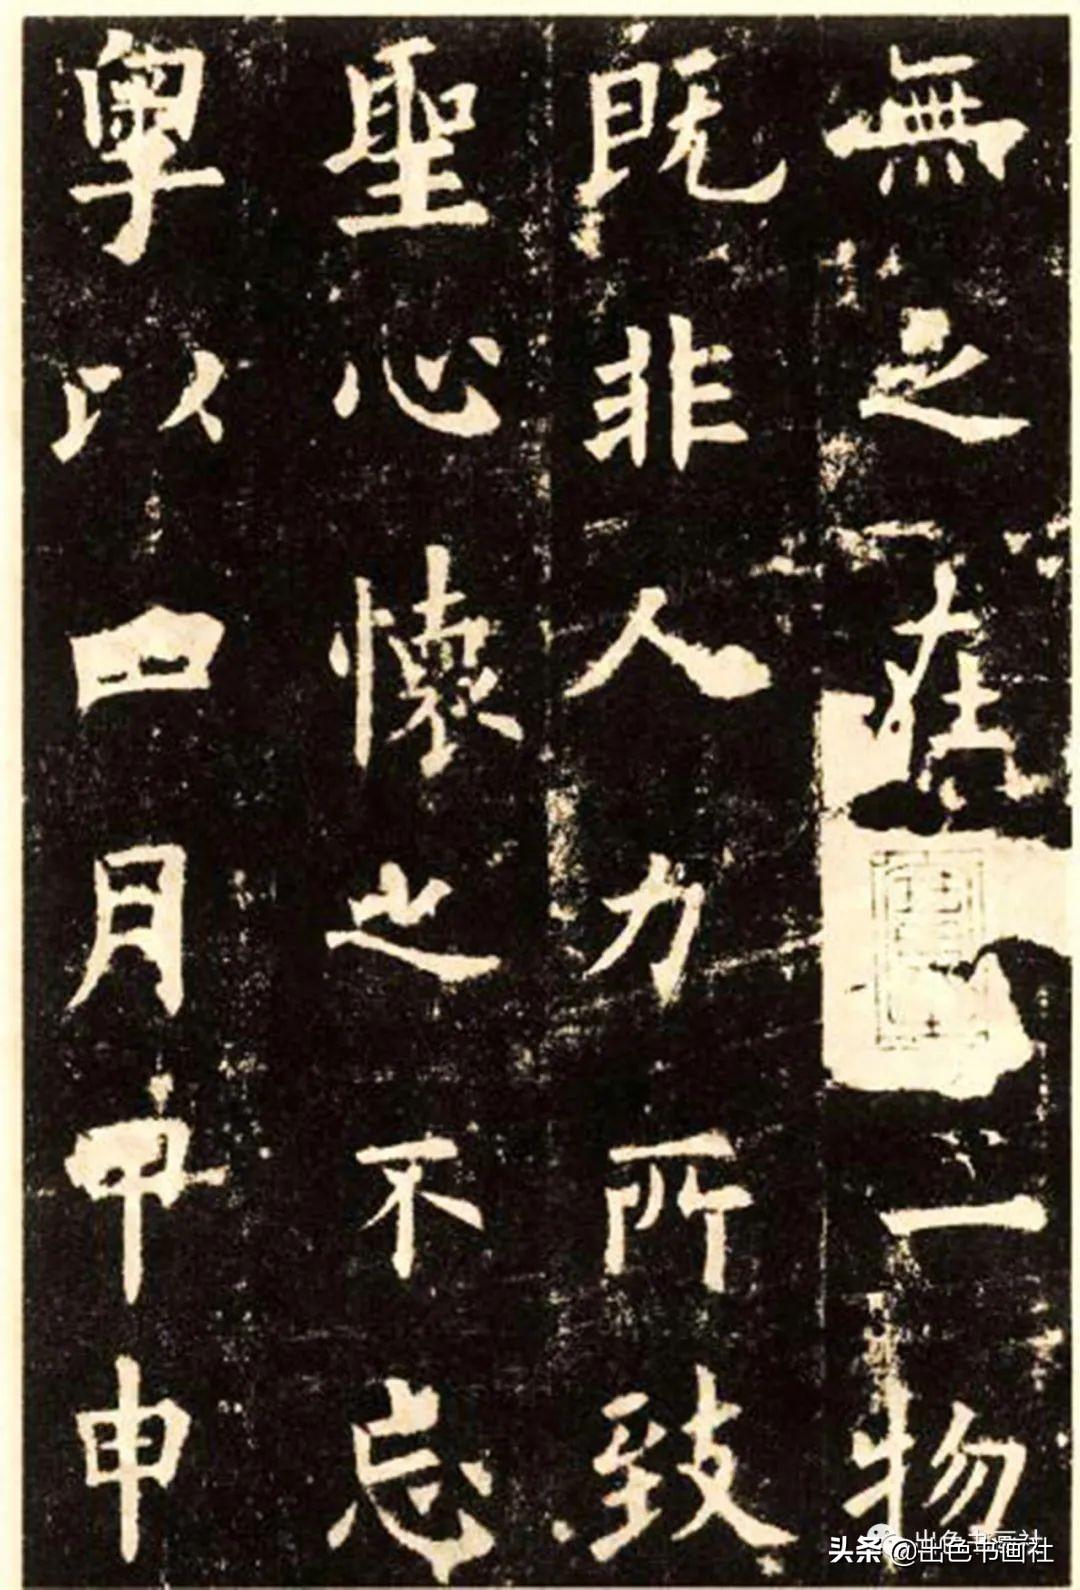 無之在一物
既非人力所致
聖心懷之不忘
粤以四月甲申
头条 @出色书画社
出色书画社